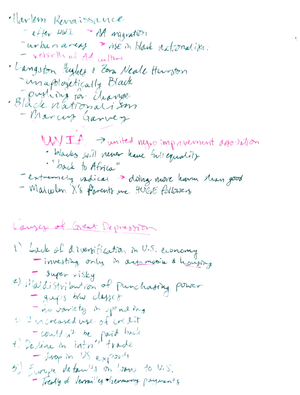 • Harlem Renaissance
– after WWI → AA migration
– urban areas → rise in black nationalism
→ rebirth of AA culture
• Langston Hughes & Zora Neale Hurston
– unapologetically Black
– pushing for change
• Black Nationalism
– Marcus Garvey
UNIA → united negro improvement association
• blacks will never have full equality
• "back to Africa"
– extremely radical → doing more harm than good
– Malcolm X's parents were HUGE followers
Causes of Great Depression
1) Lack of diversification in U.S. economy
– investing only in automobile & housing
– super risky
2) Maldistribution of purchasing power
– gaps b/w classes
– no variety in spending
3) Increased use of credit
– couldn't be paid back
4) Decline in intn'l trade
– drop in US exports
5) Europe defaults on loans to U.S.
– Treaty of Versailles → Germany payments